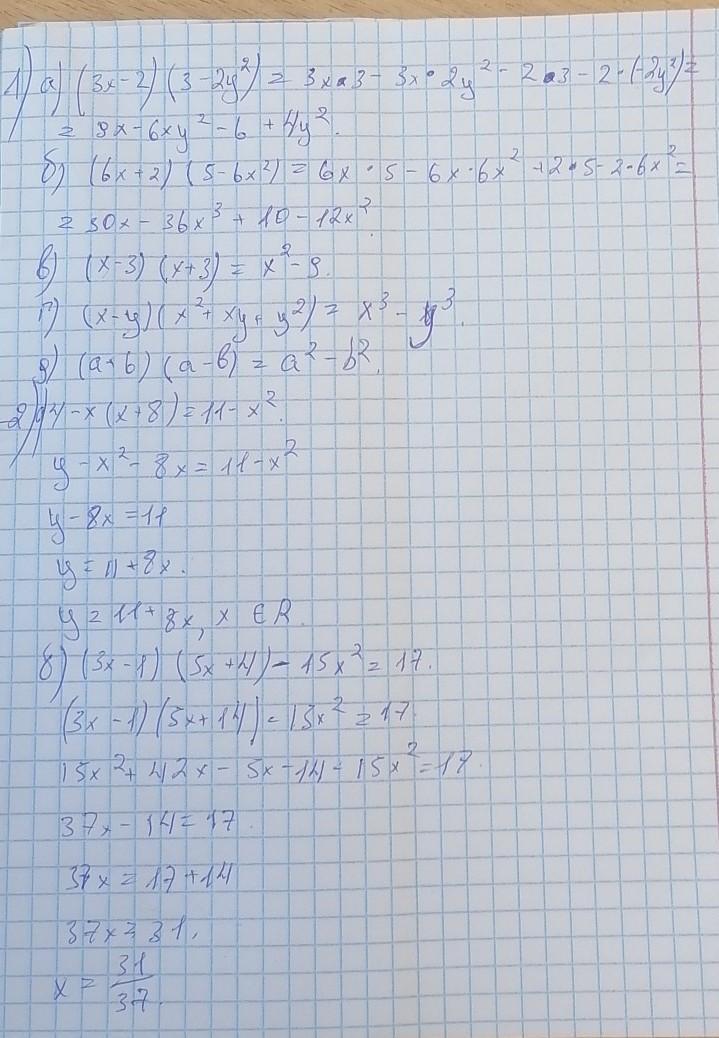 1) а) (3x-2)(3-2y²) = 3x·3 - 3x·2y² - 2·3 - 2·(-2y²) =
= 9x - 6xy² - 6 + 4y².
б) (6x+2)(5-6x²) = 6x·5 - 6x·6x² + 2·5 - 2·6x² =
= 30x - 36x³ + 10 - 12x².
в) (x-3)(x+3) = x² - 9.
г) (x-y)(x²+xy+y²) = x³ - y³.
д) (a+b)(a-b) = a² - b².
2) y - x(x+8) = 11 - x².
y - x² - 8x = 11 - x²
y - 8x = 11
y = 11 + 8x.
y = 11 + 8x, x ∈ R.
б) (3x-1)(5x+4) - 15x² = 17.
(3x-1)(5x+14) - 15x² = 17.
15x² + 42x - 5x - 14 - 15x² = 17.
37x - 14 = 17.
37x = 17 + 14
37x = 31.
x = 31/37.